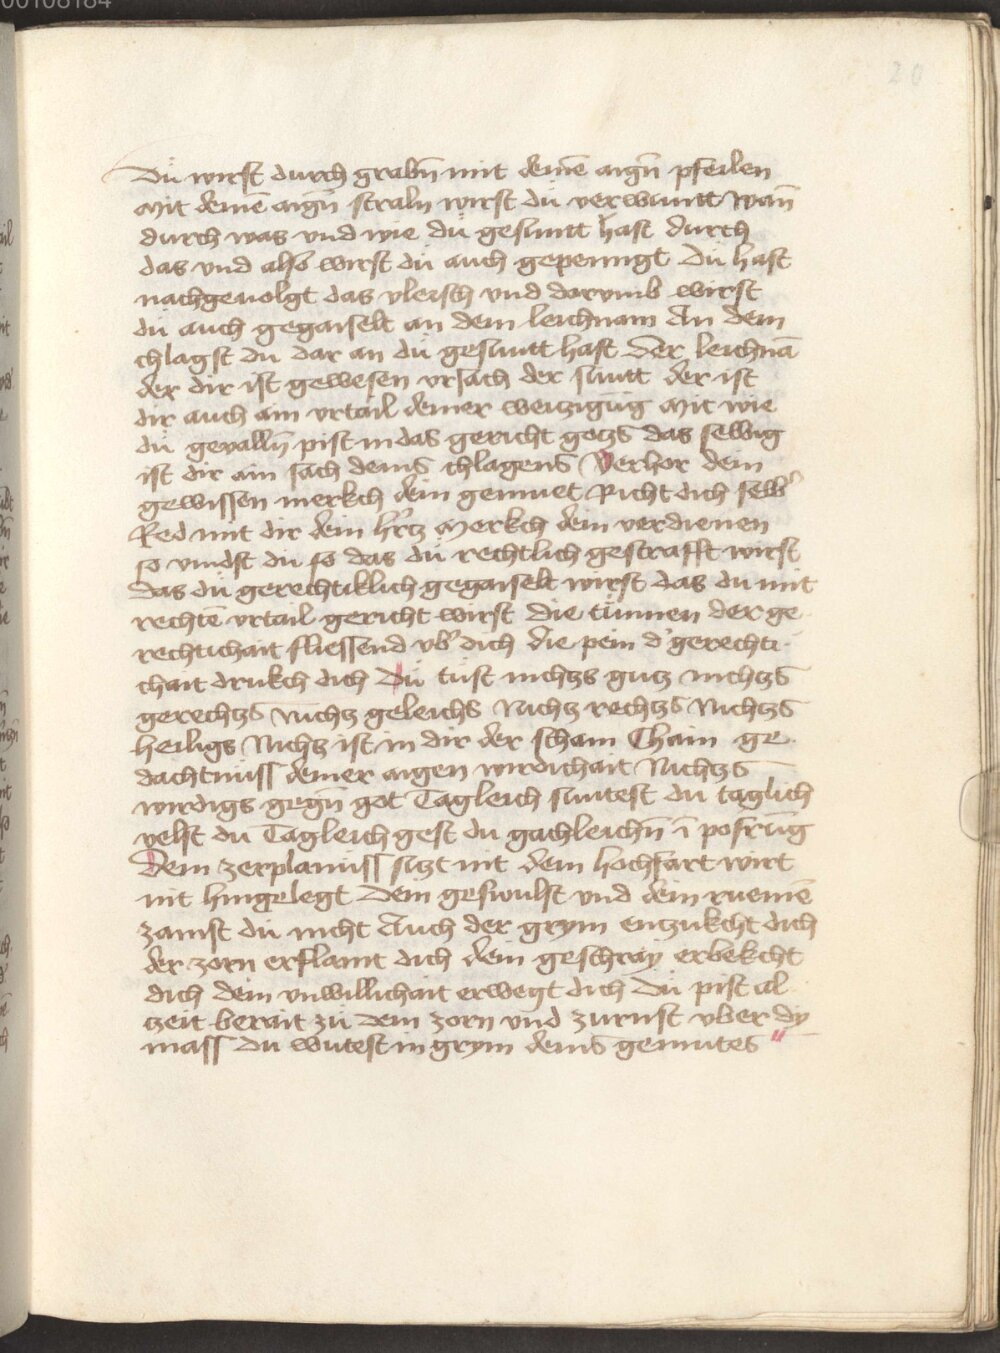 00108184
20
Du wirst durch grabn̄ mit deinē aign̄ pfeilen
mit deinē aign̄ straln wirst du verwuntt wan̄
durch was vnd wie du gesuntt hast durch
das vnd also wirst du auch gepeinigt Du hast
nachgeuolgt das vleisch vnd dorvmb wirst
du auch gegaiselt an dem leichnam An dem
chlagst du dar an du gesuntt hast Der leichnā
der dir ist gewesen vrsach der suntt der ist
dir auch ain vrtail deiner weiczigūg Mit wie
du geualln̄ pist in das gericht gotzs das selbig
ist dir ain sach deins chlagens Verhor dein
gewissen merkch dein gemuet Richt dich selb'
Red mit dir dein hr'cz Merkch dein verdienen
so vindst du so das du rechtlich gestrafft wirst
das du gerechtiklich gegaiselt wirst das du mit
rechtē vrtail gericht wirst die tünnen der ge
rechtichait fliessend vb' dich die pein d' gerechti
chait drukch dich Du tust nichtzs gutz nichtzs
gerechtzs Nichtz geleichs Nichtz rechtzs Nichtzs
heiligs Nichtz ist in dir der scham Chain ge
dachtnuss deiner aigen wirdichait Nichtzs
wirdigs gegn̄ got Tagleich suntest du taglich
velst du Tagleich gest du gachleichn̄ ī posrūg
Dein zerplanuss sitzt nit dein hochfart wirt
nit hingelegt Dein geswulst vnd dein ruemē
zamst du nicht Auch der grym enczukcht dich
der zorn erflamt dich dein geschray erbekcht
dich dein vnwillichait erwegt dich Du pist al
czeit berait zu dem zorn vnd zurnst vber dy
mass Du wutest in grym deins gemutes